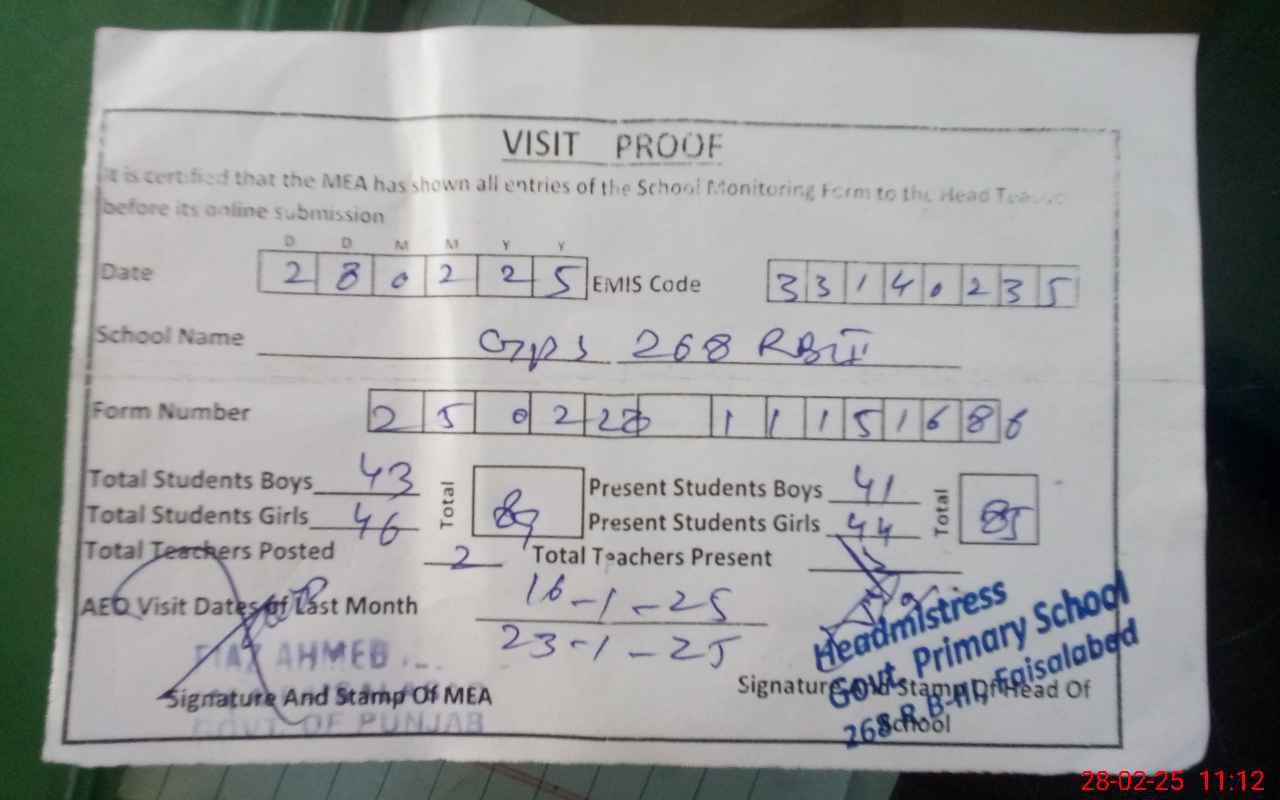 VISIT PROOF
It is certified that the MEA has shown all entries of the School Monitoring Form to the Head Teacher
before its online submission
D D M M Y Y
Date 2 8 0 2 2 5 EMIS Code 3 3 1 4 0 2 3 5
School Name GPS 268 RB II
Form Number 2 5 0 2 28 1 1 1 5 1 6 8 6
Total Students Boys 43 Total 89 Present Students Boys 41 Total 85
Total Students Girls 46 Present Students Girls 44
Total Teachers Posted 2 Total Teachers Present
AEO Visit Dates of Last Month 16-1-25
23-1-25
AHMED
Signature And Stamp Of MEA
GOVT. OF PUNJAB
Signature And Stamp Of Head Of
School
Headmistress
Govt. Primary School
268 R.B-II, Faisalabad
28-02-25 11:12